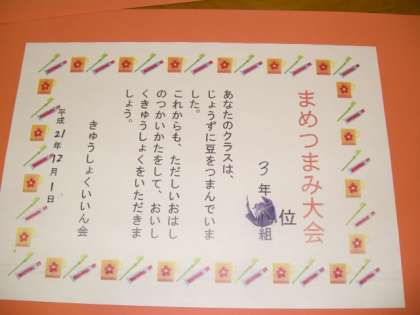 まめつまみ大会
位
3年 組
あなたのクラスは、
じょうずに豆をつまんでいま
した。
これからも、ただしいおはし
のつかいかたをして、おいし
くきゅうしょくをいただきま
しょう。
きゅうしょくいいん会
平成21年12月1日